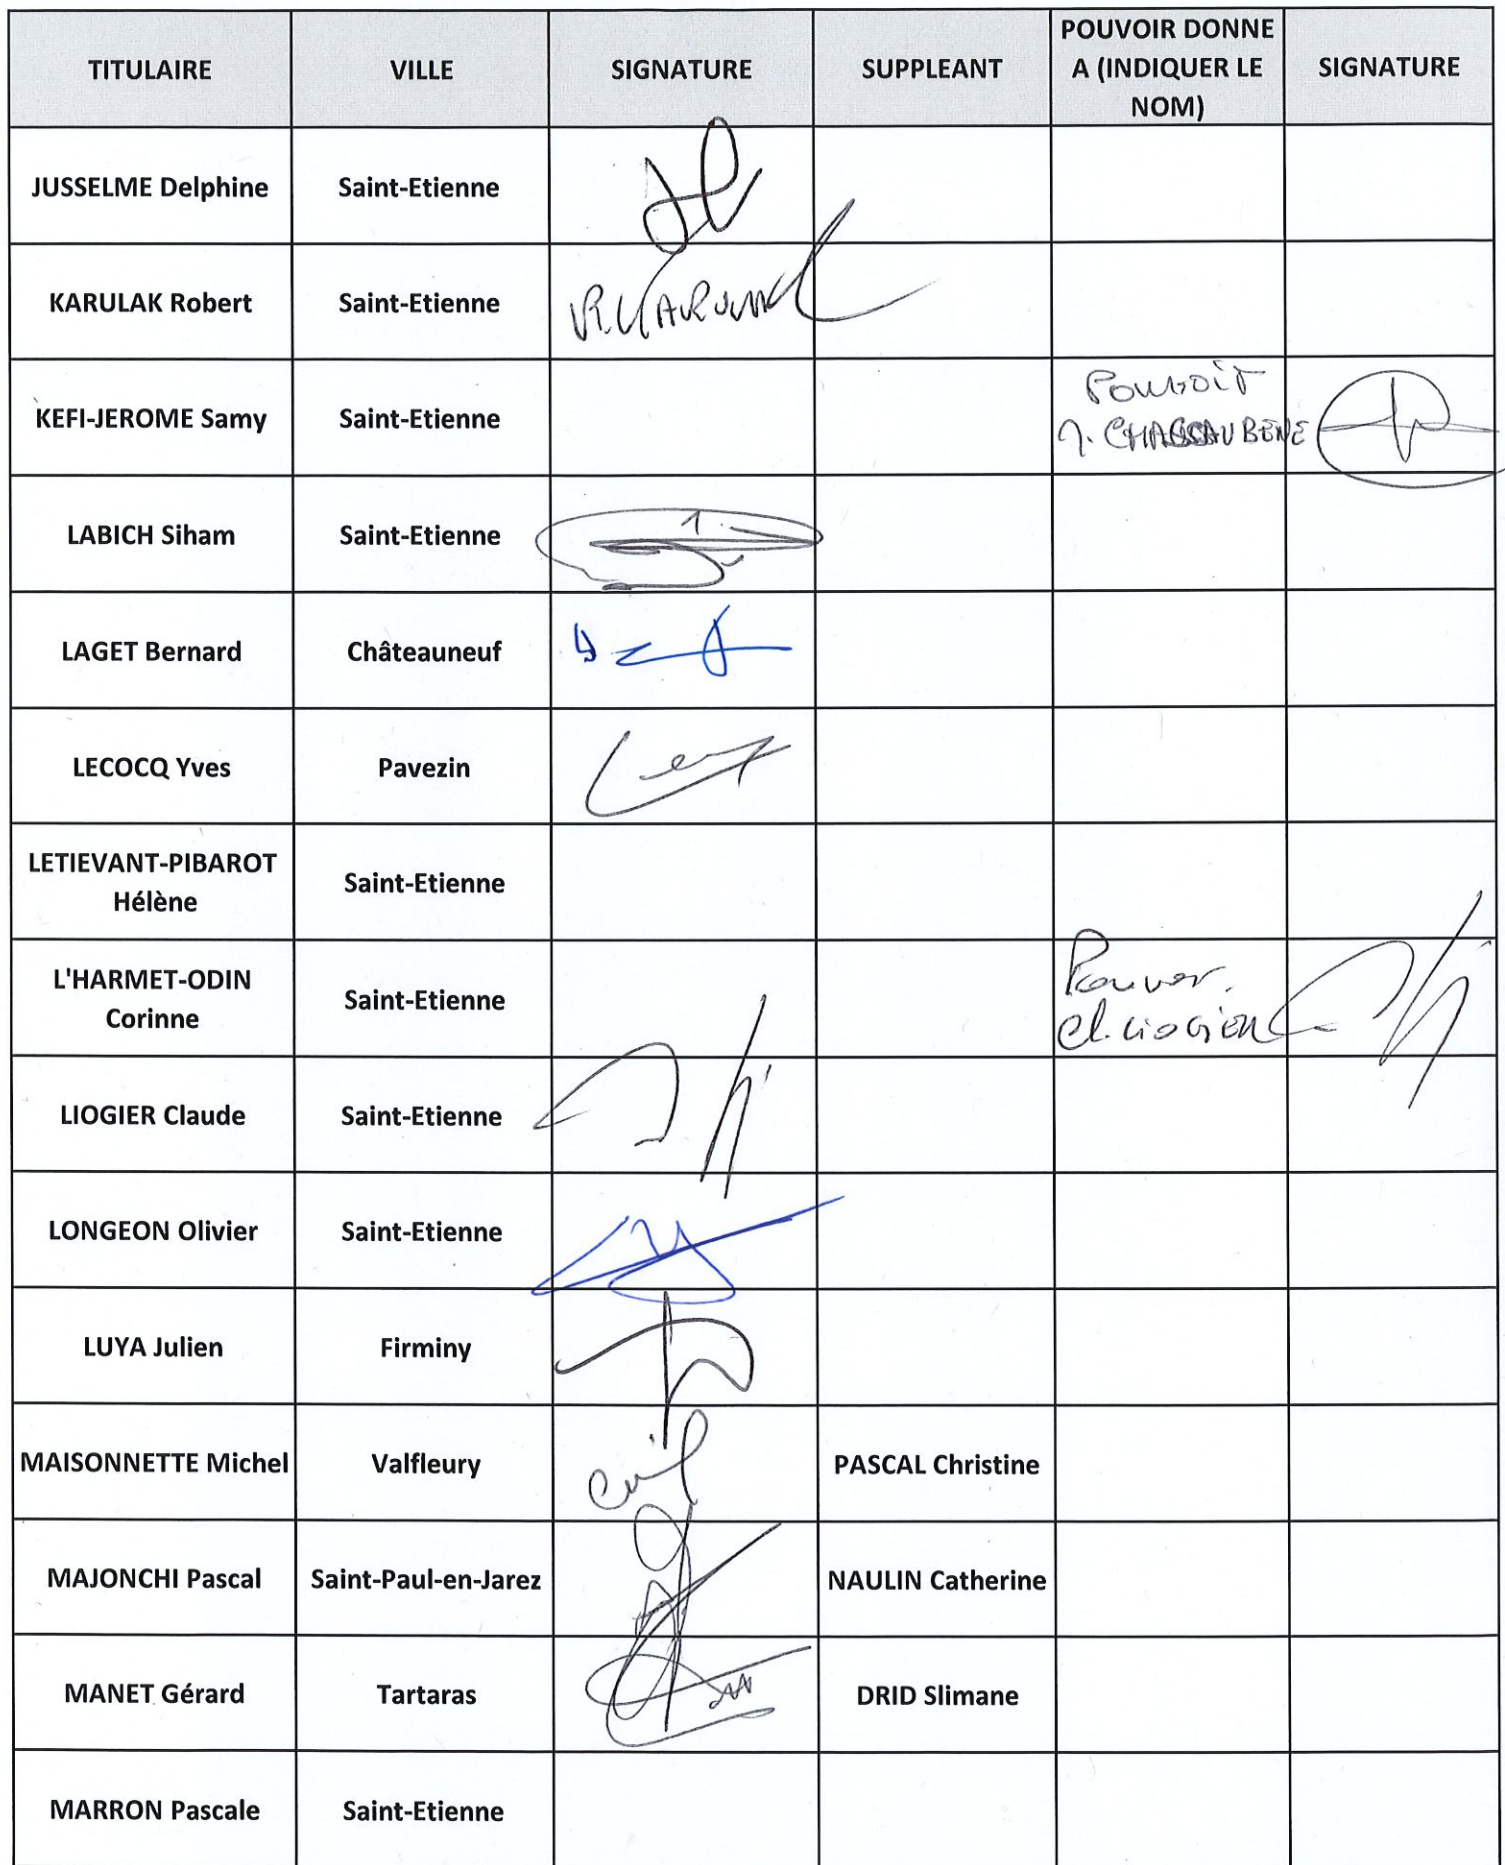 TITULAIRE VILLE SIGNATURE SUPPLEANT POUVOIR DONNE A (INDIQUER LE NOM) SIGNATURE
JUSSELME Delphine Saint-Etienne
KARULAK Robert Saint-Etienne R.KARULAK
KEFI-JEROME Samy Saint-Etienne Pouvoir
CHASSAUBENE
LABICH Siham Saint-Etienne
LAGET Bernard Châteauneuf
LECOCQ Yves Pavezin
LETIEVANT-PIBAROT
Hélène
Saint-Etienne
L'HARMET-ODIN
Corinne
Saint-Etienne
Pouvoir
Cl. LIOGIER
LIOGIER Claude Saint-Etienne
LONGEON Olivier Saint-Etienne
LUYA Julien Firminy
MAISONNETTE Michel Valfleury PASCAL Christine
MAJONCHI Pascal Saint-Paul-en-Jarez NAULIN Catherine
MANET Gérard Tartaras DRID Slimane
MARRON Pascale Saint-Etienne